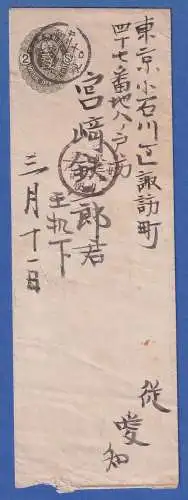 東京小石川区諏訪町
四十七番地八ノ戸方
宮﨑鉄三郎君
玉机下
三月十一日
従愛知
2